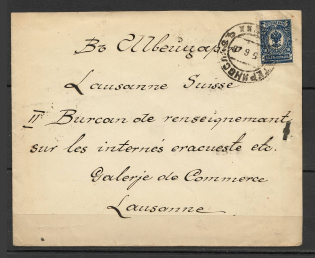 Въ Швейцар
Lausanne Suisse
Bureau de renseignement
sur les internés evacueste etc.
Galerie de Commerce
Lausanne.